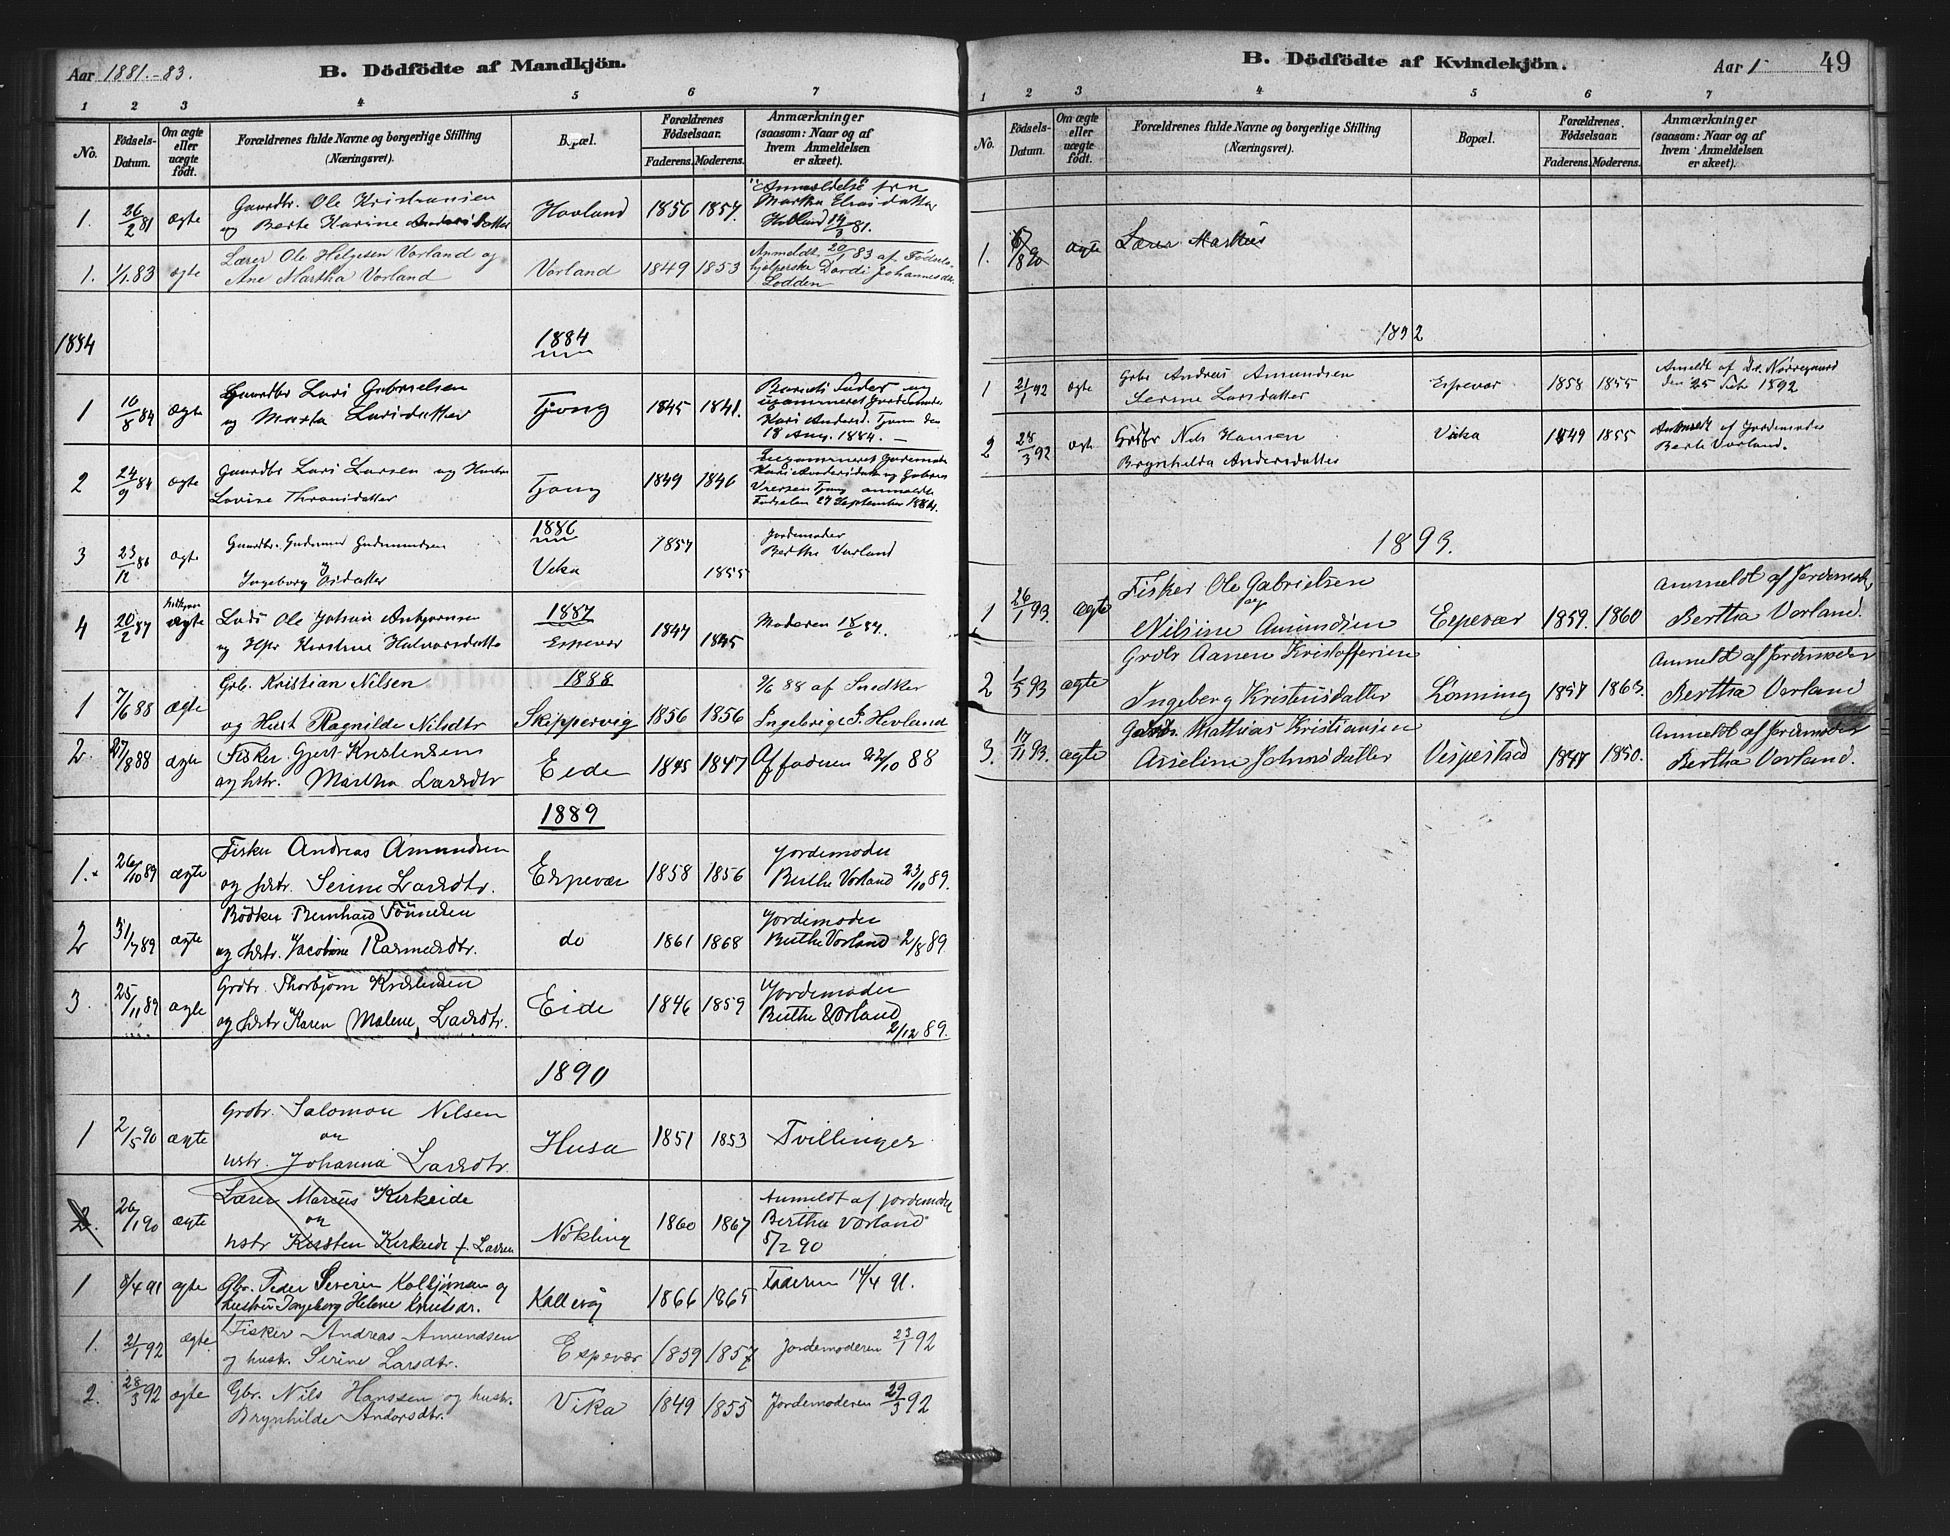 Aar 1881.-83.
B. Dödfödte af Mandkjön.
1 2 3 4 5 6 7
No. Födsels-Datum. Om ægte eller uægte födt. Forældrenes fulde Navne og borgerlige Stilling (Næringsvei). Bopæl. Forældrenes Födselsaar. Faderens. Moderens. Anmærkninger (saasom: Naar og af hvem Anmeldelsen er skeet).
1. 26/2 81 ægte Gaardbr. Ole Kristiansen Hovland 1856 1857. "Anmeldelse" fra
og Berte Karine Martha Eliasdatter
19/3 81.
1. 1/1 83 ægte Lærer Ole Helgesen Vorland og Vorland 1849 1853 Anmeldt 20/1 83 af Födsels-
Ane Martha Vorland hjelperske Dordi Johannesdtr.
Lodden
1884 1884
1 10/8 84 ægte Gaardbr Lars Gabrielsen Tjong 1845 1841. Barnets Fader og
og Marta Larsdatter uexamineret Jordemoder
Kari Andersd. Tjong den
18 Aug. 1884. –
2 24/9 84 ægte Gaardbr Lars Larsen og Hustru Tjong 1849 1846 Uexamineret Jordemoder
Lovise Thronsdatter Kari Andersdatter og Gabriel
Iversen Tjong anmeldte
Födselen 27 September 1884.
1886
3 23/12 86 ægte Gaardbr. Gudmund Gudmundsen Vika 1857 1855 Jordemoder
Ingeborg Berthe Vorland
1887
4 20/2 87 ægte Lods Ole Johan Espevær 1847 1845 Moderen 18/6 87.
og Hstr Kirstine Halvorsdatter
1888
1 7/6 88 ægte Grb. Kristian Nilsen Skippervig 1856 1856 9/6 88 af Snedker
og Hust Ragnilde Nilsdtr Ingebrigt S. Hovland
2. 27/8 88 ægte Fisker Gjert Kristensen Eide 1845 1847 Af faderen 22/10 88
og hstr. Martha Larsdtr
1889
1. 26/10 89 ægte Fisker Andreas Amundsen Espevær 1858 1856 Jordemoder
og hstr. Serine Larsdtr. Berthe Vorland 23/10 89.
2 31/7 89 ægte Bödker Bernhard Tönnesen do 1861 1868 Jordemoder
og hstr. Jacobine Rasmusdtr. Berthe Vorland 2/8 89
3. 25/11 89 ægte Grdbr. Thorbjörn Kristensen Eide 1846 1859 Jordemoder
og hstr. Karen Malene Larsdtr. Berthe Vorland
2/12 89.
1890
1 2/5 90 ægte Grdbr. Salomon Nilsen Husa 1851 1853 Tvillinger
og
hstr. Johanna Larsdtr.
2. 26/1 90 ægte Lærer Marcus Kirkeide Nökling 1860 1867 Anmeldt af jordemoder
og Bertha Vorland
hstr Kirsten Kirkeide f. Larsen 5/2 90
1 8/4 91 ægte Gbr. Peder Severin Kolbjörnsen og Kallevåg 1866 1865 Faderen 14/4 91.
hustru Ingeborg Helene Knutsdr.
1. 21/1 92 ægte Fisker Andreas Amundsen Espevær 1859 1857 Jordemoderen 23/1 92
og hustr. Serine Larsdtr.
2. 28/3 92 ægte Gbr. Nils Hanssen og hustr. Vika 1849 1855 Jordemoderen 29/3 92
Brynhilde Andersdtr.
B. Dödfödte af Kvindekjön.
Aar 1 49
1 2 3 4 5 6 7
No. Födsels-Datum. Om ægte eller uægte födt. Forældrenes fulde Navne og borgerlige Stilling (Næringsvei). Bopæl. Forældrenes Födselsaar. Faderens. Moderens. Anmærkninger (saasom: Naar og af hvem Anmeldelsen er skeet).
1. ægte Lærer Markus
1892
1 21/1 92 ægte Grbr Andreas Amundsen Espevær 1858 1855 Anmeldt af
Serine Larsdatter den 25 1892
2 28/3 92 ægte Grdbr Nils Hansen Vika 1849 1855 Anmeldt af Jordemoder
Brynhilda Andersdatter Berte Vorland.
1893.
1 26/1 93 ægte Fisker Ole Gabrielsen Espevær 1859. 1860 Anmeldt af Jordemoder
og
Nilsine Amundsen Bertha Vorland.
2 1/5 93 ægte Grdbr Aanen Kristoffersen Lönning 1857 1863. Anmeldt af Jordemoder
Ingeborg Kristensdatter Bertha Vorland
3. 17/11 93. ægte Gardbr. Mathias Kristiansen Vespestad 1847 1850. Anmeldt af Jordemoder
Asseline Johnsdatter Bertha Vorland.